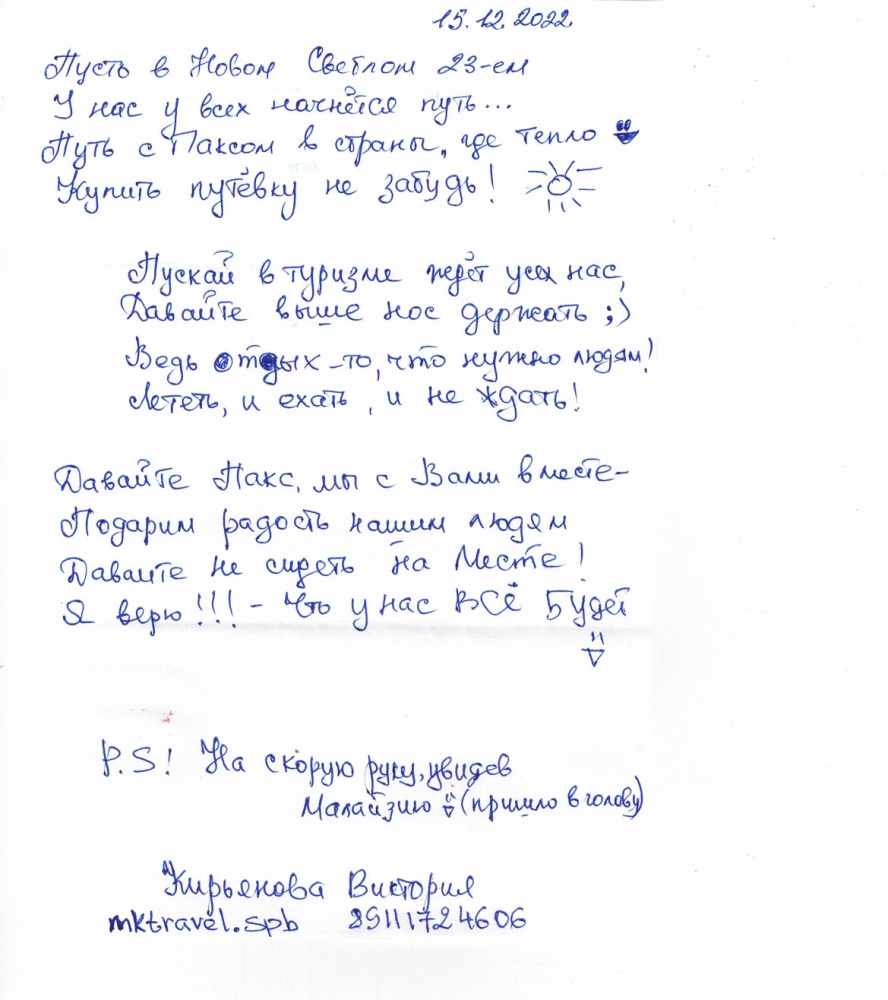 15.12.2022
Пусть в Новом Светлом 23-ем
У нас у всех начнётся путь...
Путь с Паксом в страны, где тепло
Купить путёвку не забудь!
Пускай в туризме ждёт успех нас,
Давайте выше нос держать ;)
Ведь отдых-то, что нужно людям!
Лететь, и ехать, и не ждать!
Давайте Пакс, мы с Вами вместе-
Подарим радость нашим людям
Давайте не сидеть на Месте!
Я верю!!! - Что у нас ВСЁ Будет
P.S! На скорую руку, увидев
Малайзию (пришло в голову)
Кирьянова Виктория
mktravel.spb 89111724606